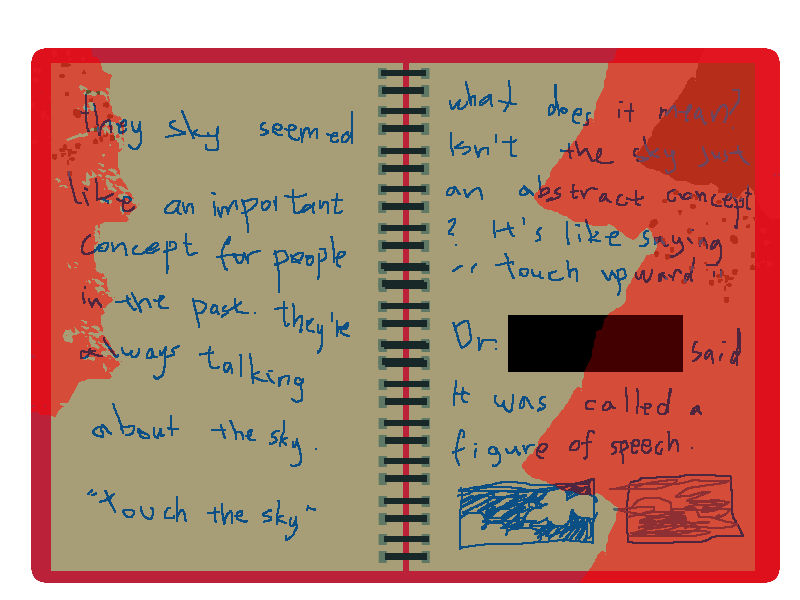 They sky seemed
like an important
concept for people
in the past. they're
always talking
about the sky.
"Touch the sky"
what does it mean?
Isn't the sky just
an abstract concept
? It's like saying
"touch upward"
Dr. said
It was called a
figure of speech.